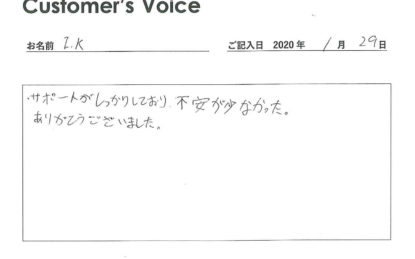 Customer's Voice
お名前 I.K ご記入日 2020年 1月 29日
・サポートがしっかりしており、不安が少なかった。
ありがとうございました。